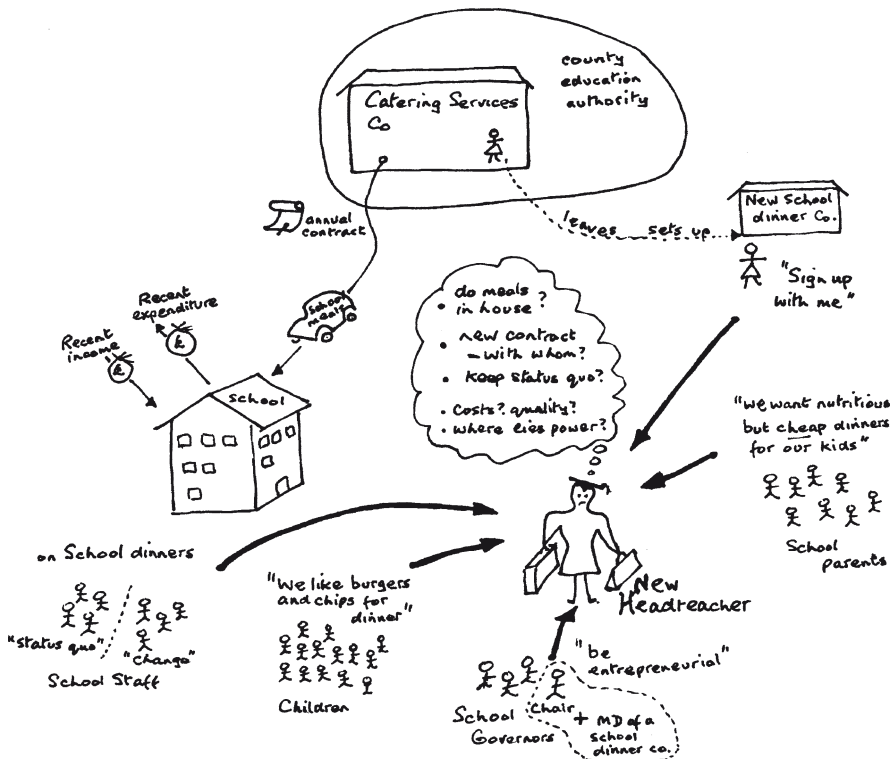 county
education
authority
Catering Services
Co
annual
contract
leaves sets up
New School
dinner Co.
"Sign up
with me"
School
meals
Recent
expenditure
Recent
income
£
£
School
• do meals
in house?
• new contract
– with whom?
• keep status quo?
• costs? quality?
• where lies power?
"We want nutritious
but cheap dinners
for our kids"
School
parents
on School dinners
"Status quo"
"Change"
School Staff
"We like burgers
and chips for
dinner"
Children
New
Headteacher
"be
entrepreneurial"
Chair
School
Governors
+ MD of a
school
dinner co.